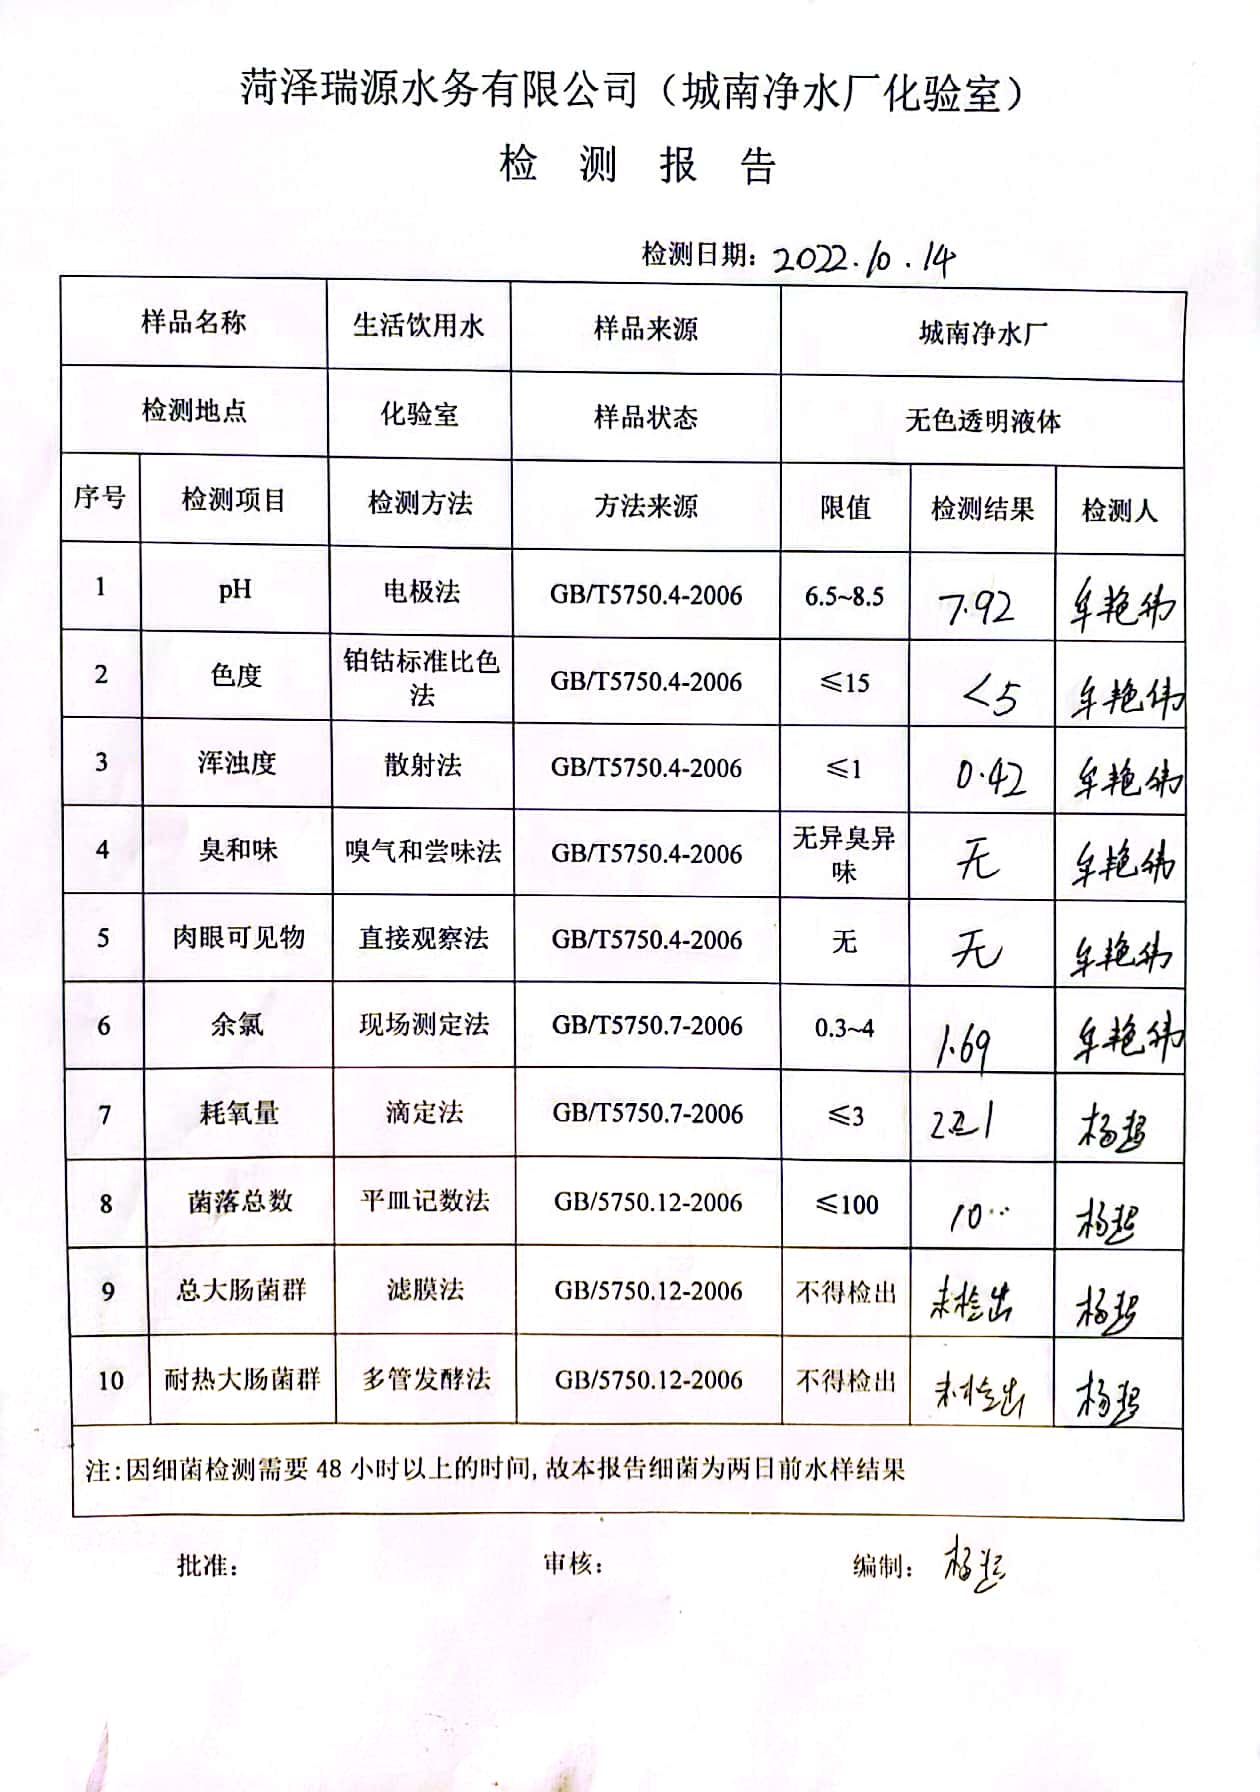 菏泽瑞源水务有限公司（城南净水厂化验室）
检 测 报 告
检测日期：2022.10.14
样品名称 生活饮用水 样品来源 城南净水厂
检测地点 化验室 样品状态 无色透明液体
序号 检测项目 检测方法 方法来源 限值 检测结果 检测人
1 pH 电极法 GB/T5750.4-2006 6.5~8.5 7.92 牟艳伟
2 色度 铂钴标准比色
法 GB/T5750.4-2006 ≤15 <5 牟艳伟
3 浑浊度 散射法 GB/T5750.4-2006 ≤1 0.42 牟艳伟
4 臭和味 嗅气和尝味法 GB/T5750.4-2006 无异臭异
味 无 牟艳伟
5 肉眼可见物 直接观察法 GB/T5750.4-2006 无 无 牟艳伟
6 余氯 现场测定法 GB/T5750.7-2006 0.3~4 1.69 牟艳伟
7 耗氧量 滴定法 GB/T5750.7-2006 ≤3
8 菌落总数 平皿记数法 GB/5750.12-2006 ≤100 10
9 总大肠菌群 滤膜法 GB/5750.12-2006 不得检出 未检出
10 耐热大肠菌群 多管发酵法 GB/5750.12-2006 不得检出 未检出
注:因细菌检测需要 48 小时以上的时间,故本报告细菌为两日前水样结果
批准： 审核： 编制：